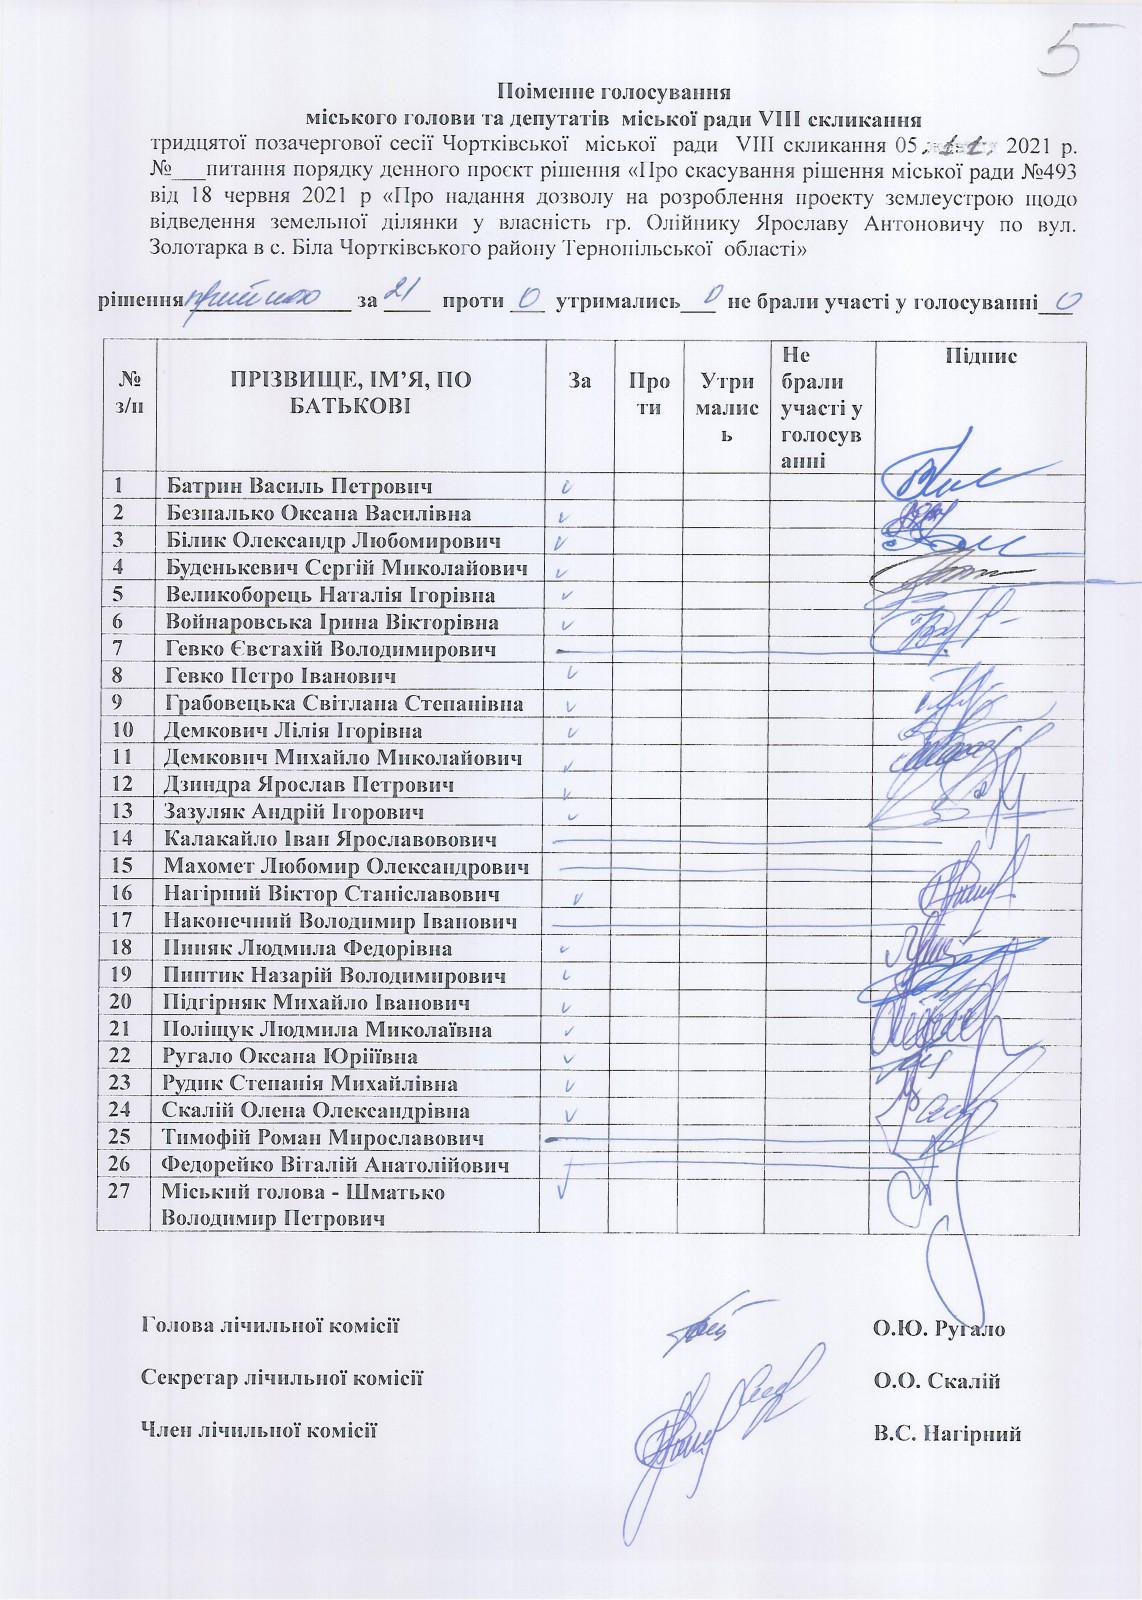 5
Поіменне голосування
міського голови та депутатів міської ради VIII скликання
тридцятої позачергової сесії Чортківської міської ради VIII скликання 05.11. 2021 р.
№___питання порядку денного проєкт рішення «Про скасування рішення міської ради №493
від 18 червня 2021 р «Про надання дозволу на розроблення проекту землеустрою щодо
відведення земельної ділянки у власність гр. Олійнику Ярославу Антоновичу по вул.
Золотарка в с. Біла Чортківського району Тернопільської області»
рішення прийнято за 21 проти 0 утримались 0 не брали участі у голосуванні 0
№ з/п ПРІЗВИЩЕ, ІМ’Я, ПО БАТЬКОВІ За Про ти Утри малис ь Не брали участі у голосув анні Підпис
1 Батрин Василь Петрович v
2 Безпалько Оксана Василівна v
3 Білик Олександр Любомирович v
4 Буденькевич Сергій Миколайович v
5 Великоборець Наталія Ігорівна v
6 Войнаровська Ірина Вікторівна v
7 Гевко Євстахій Володимирович
8 Гевко Петро Іванович v
9 Грабовецька Світлана Степанівна v
10 Демкович Лілія Ігорівна v
11 Демкович Михайло Миколайович v
12 Дзиндра Ярослав Петрович v
13 Зазуляк Андрій Ігорович v
14 Калакайло Іван Ярославовович
15 Махомет Любомир Олександрович
16 Нагірний Віктор Станіславович v
17 Наконечний Володимир Іванович
18 Пиняк Людмила Федорівна v
19 Пиптик Назарій Володимирович v
20 Підгірняк Михайло Іванович v
21 Поліщук Людмила Миколаївна v
22 Ругало Оксана Юріїївна v
23 Рудик Степанія Михайлівна v
24 Скалій Олена Олександрівна v
25 Тимофій Роман Мирославович
26 Федорейко Віталій Анатолійович
27 Міський голова - Шматько v
Володимир Петрович
Голова лічильної комісії О.Ю. Ругало
Секретар лічильної комісії О.О. Скалій
Член лічильної комісії В.С. Нагірний